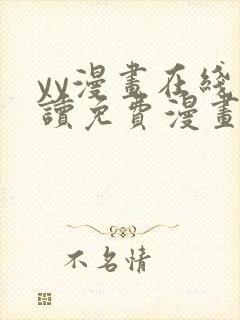 yy漫畫在綫
讀免費漫畫
不名情